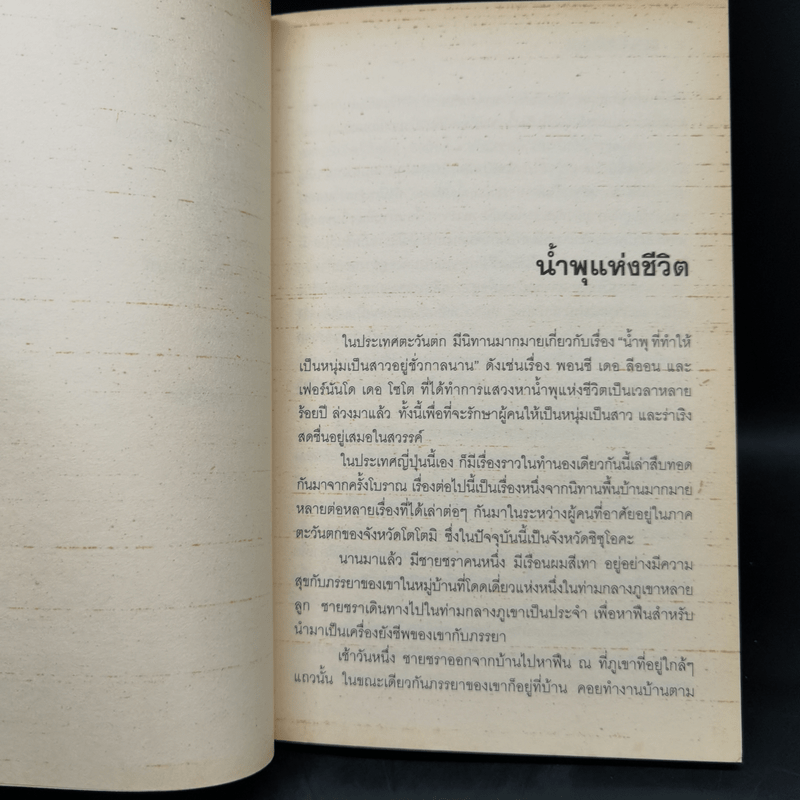 น้ำพุแห่งชีวิต
ในประเทศตะวันตก มีนิทานมากมายเกี่ยวกับเรื่อง “น้ำพุ ที่ทำให้
เป็นหนุ่มเป็นสาวอยู่ชั่วกาลนาน” ดังเช่นเรื่อง พอนซี เดอ ลีออน และ
เฟอร์นันโด เดอ โซโต ที่ได้ทำการแสวงหาน้ำพุแห่งชีวิตเป็นเวลาหลาย
ร้อยปี ล่วงมาแล้ว ทั้งนี้เพื่อที่จะรักษาผู้คนให้เป็นหนุ่มเป็นสาว และร่าเริง
สดชื่นอยู่เสมอในสวรรค์
ในประเทศญี่ปุ่นนี้เอง ก็มีเรื่องราวในทำนองเดียวกันนี้เล่าสืบทอด
กันมาจากครั้งโบราณ เรื่องต่อไปนี้เป็นเรื่องหนึ่งจากนิทานพื้นบ้านมากมาย
หลายต่อหลายเรื่องที่ได้เล่าต่อๆ กันมาในระหว่างผู้คนที่อาศัยอยู่ในภาค
ตะวันตกของจังหวัดโตโตมิ ซึ่งในปัจจุบันนี้เป็นจังหวัดชิซุโอคะ
นานมาแล้ว มีชายชราคนหนึ่ง มีเรือนผมสีเทา อยู่อย่างมีความ
สุขกับภรรยาของเขาในหมู่บ้านที่โดดเดี่ยวแห่งหนึ่งในท่ามกลางภูเขาหลาย
ลูก ชายชราเดินทางไปในท่ามกลางภูเขาเป็นประจำ เพื่อหาฟืนสำหรับ
นำมาเป็นเครื่องยังชีพของเขากับภรรยา
เช้าวันหนึ่ง ชายชราออกจากบ้านไปหาฟืน ณ ที่ภูเขาที่อยู่ใกล้ๆ
แถวนั้น ในขณะเดียวกันภรรยาของเขาก็อยู่ที่บ้าน คอยทำงานบ้านตาม